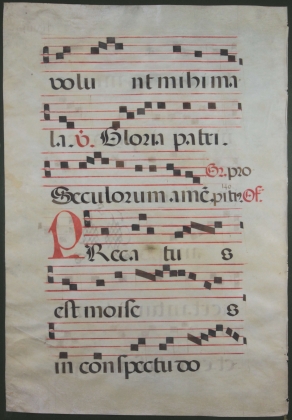 volu nt mihi ma
la. v̇. Gloria patri.
Gr. pro
Seculorum amē. pitr. Of.
PReca tu s
est moise s
in conspectu do